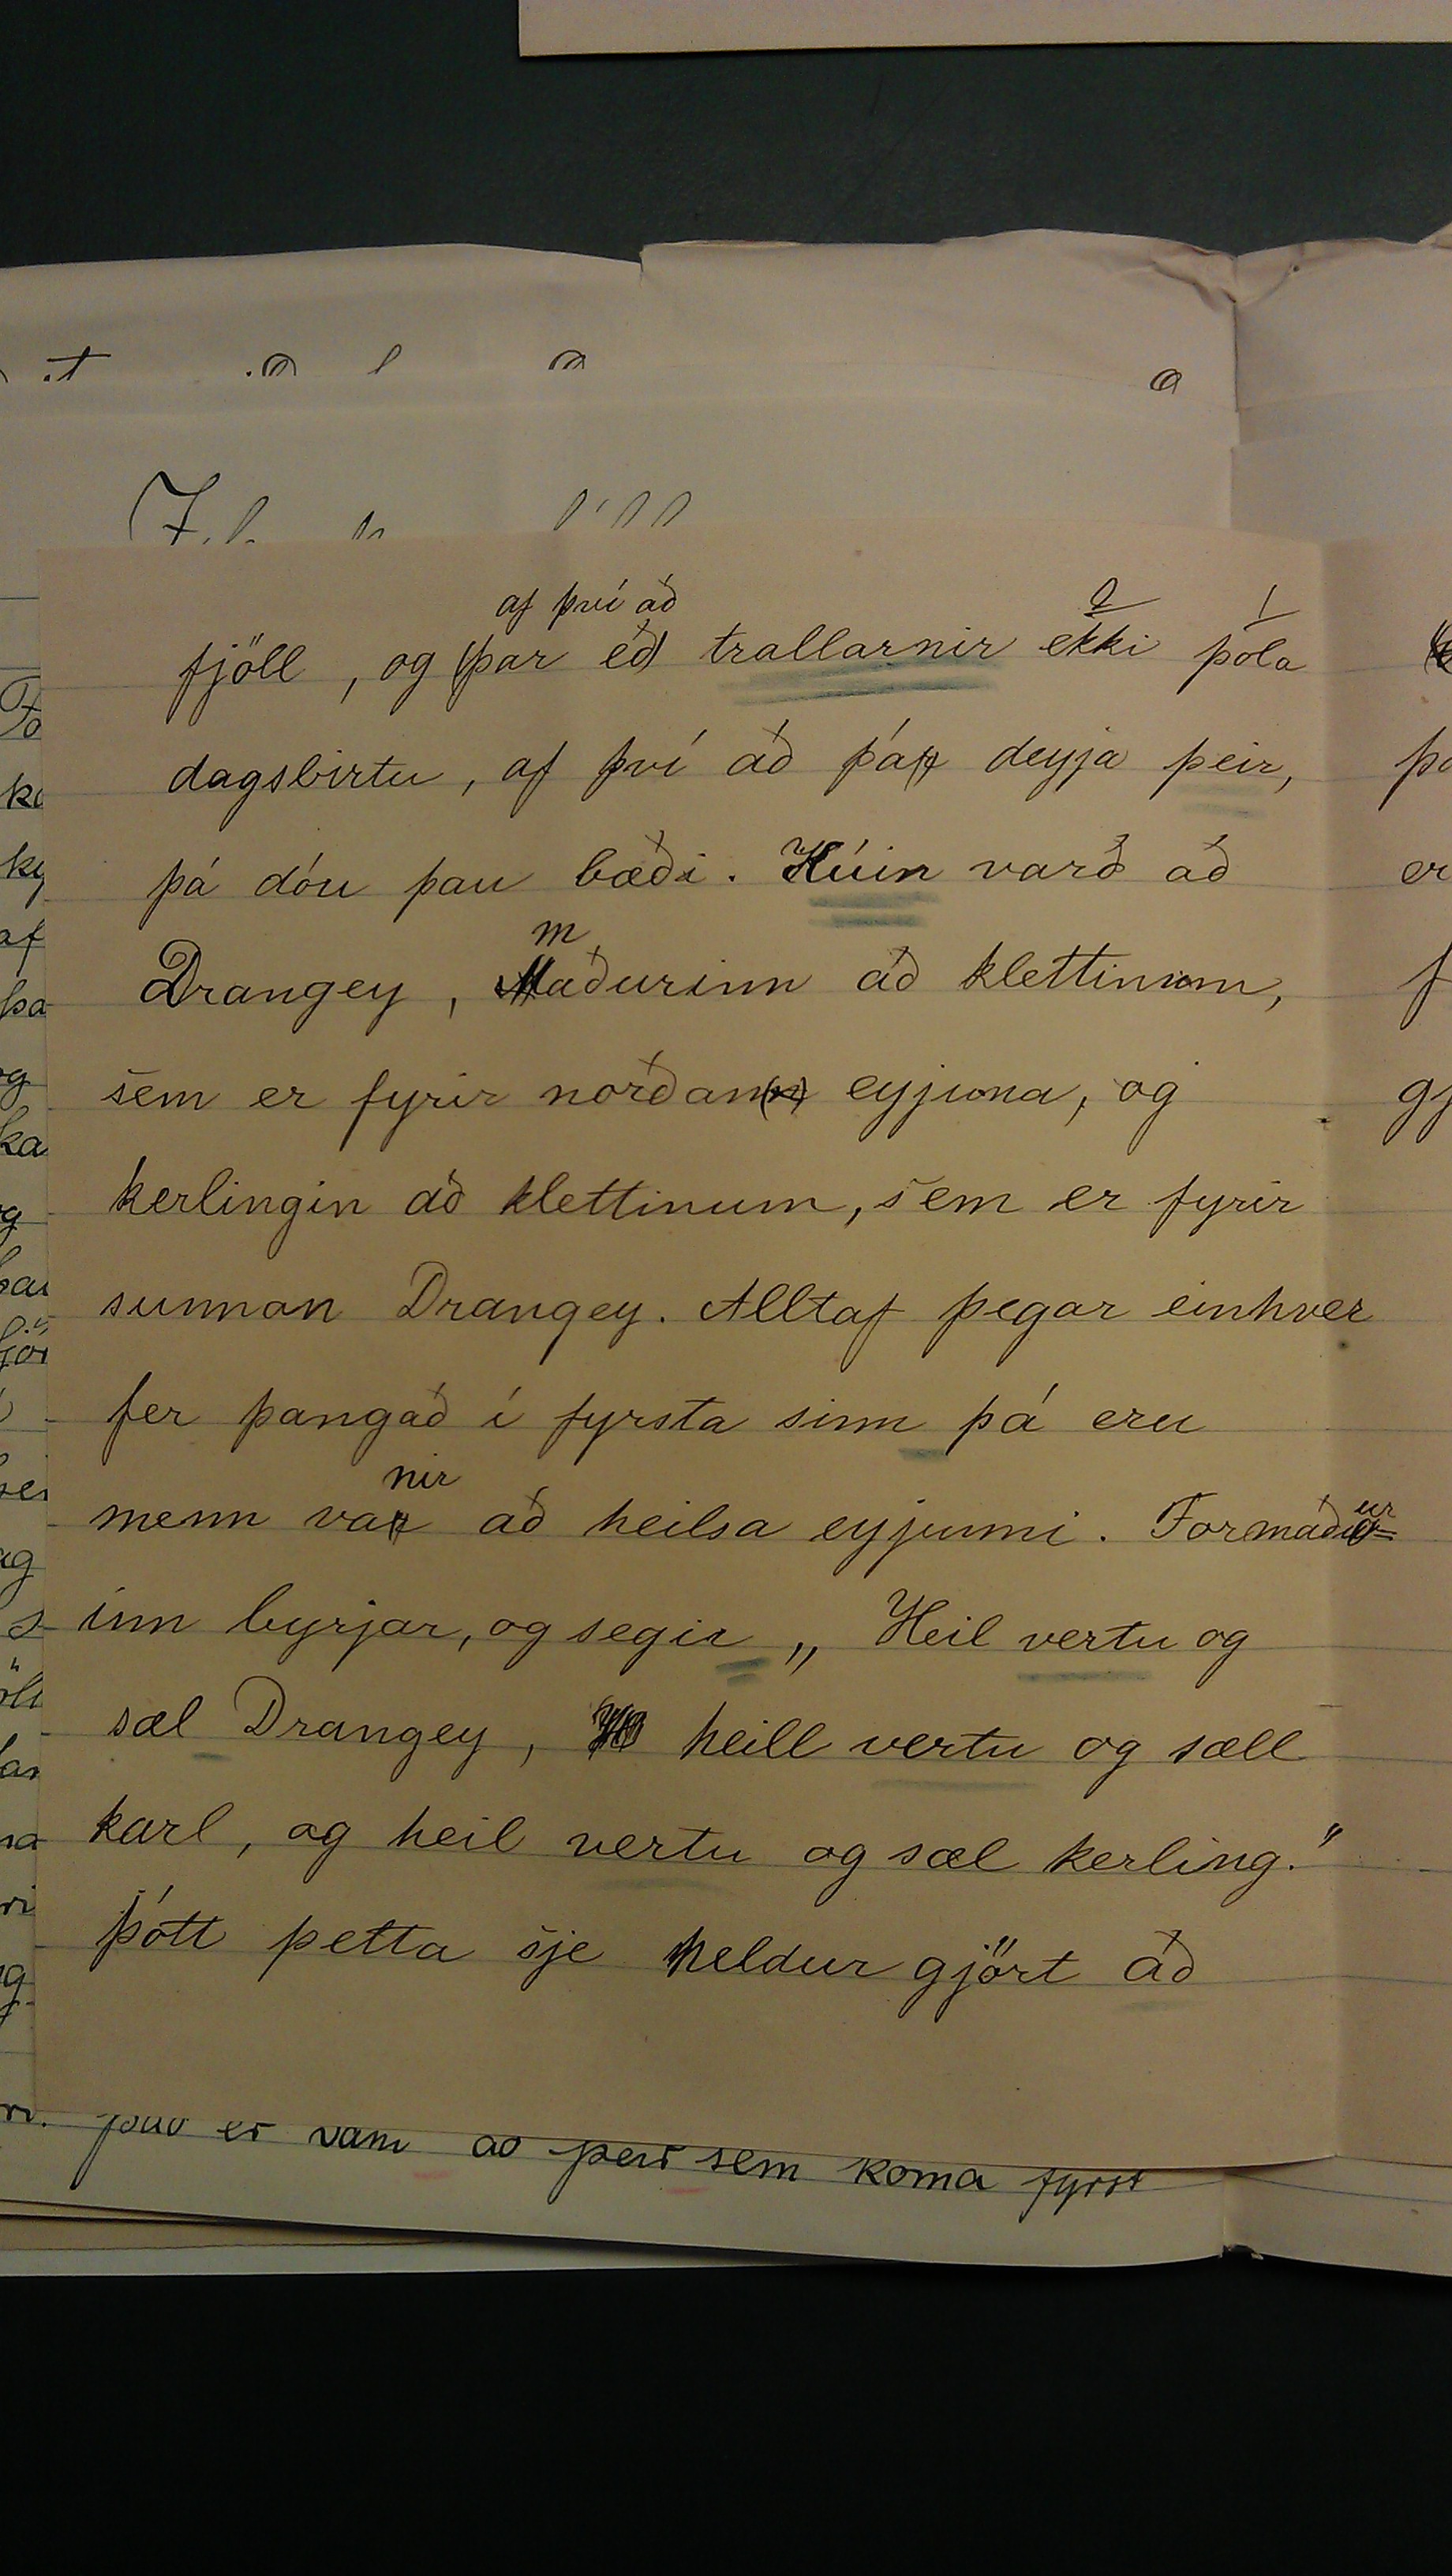 af því að 2 1
fjöll, og (þar eð) trallarnir ekki þola
dagsbirtu, af því að þar deyja þeir,
þá dóu þau bæði. Kúin varð að
m
Drangey, Maðurinn að klettinum,
sem er fyrir norðann(n) eyjuna, og
kerlingin að klettinum, sem er fyrir
sunnan Drangey. Alltaf þegar einhver
fer þangað í fyrsta sinn þá eru
nir
menn var að heilsa eyjunni. Formaður=
inn byrjar, og segir „Heil vertu og
sæl Drangey, heill vertu og sæll
karl, og heil vertu og sæl kerling."
Þótt þetta sje heldur gjört að
það er vani að þeir sem koma fyrst